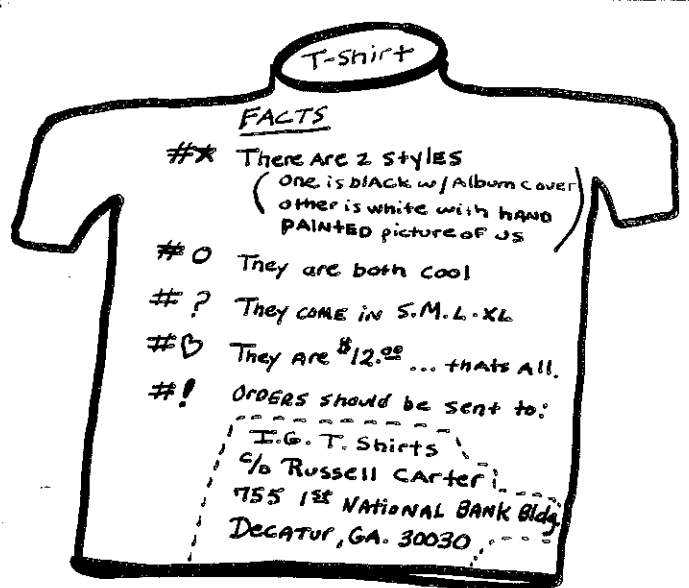 T-Shirt
FACTS
#* There Are 2 styles
(One is black w/ Album cover
other is white with HAND
PAINTED picture of us)
#O They are both cool
#? They come in S.M.L.XL
#♡ They Are $12.00 ... thats All.
#! Orders should be sent to:
I.G. T. Shirts
c/o Russell Carter
755 1st National Bank Bldg.
Decatur, GA. 30030